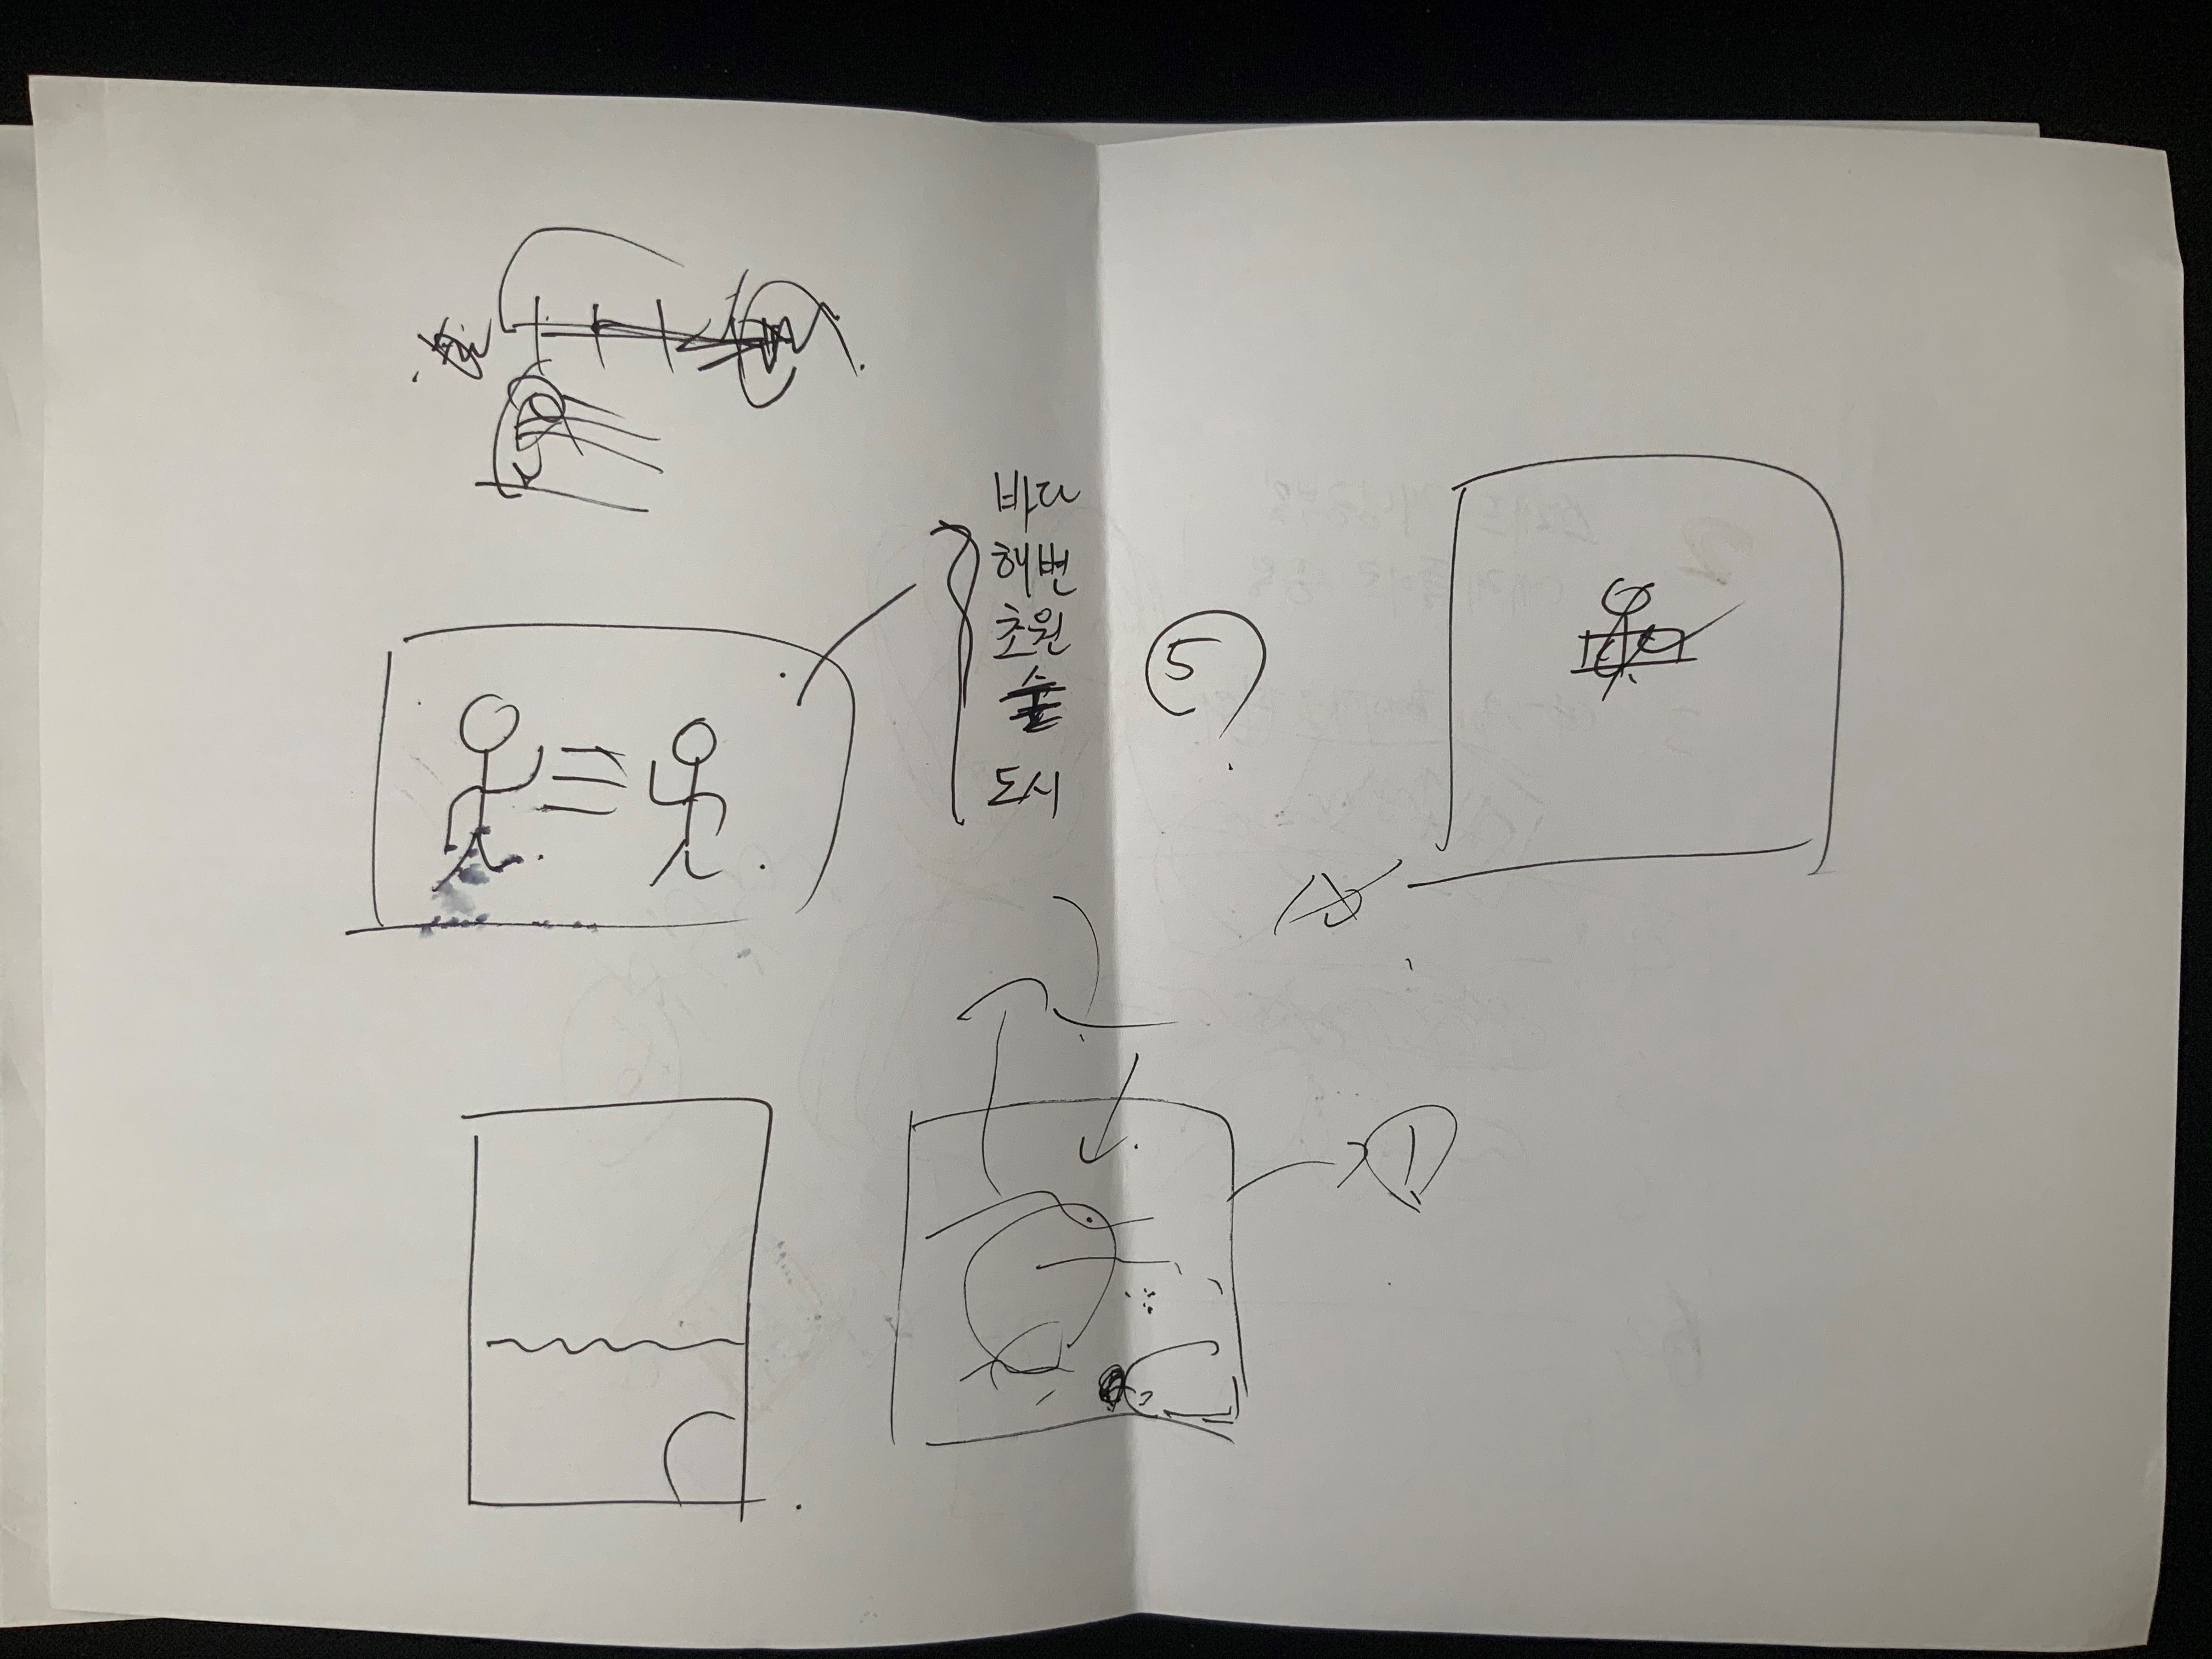 바다
해변
초원
숲
도시
5
1